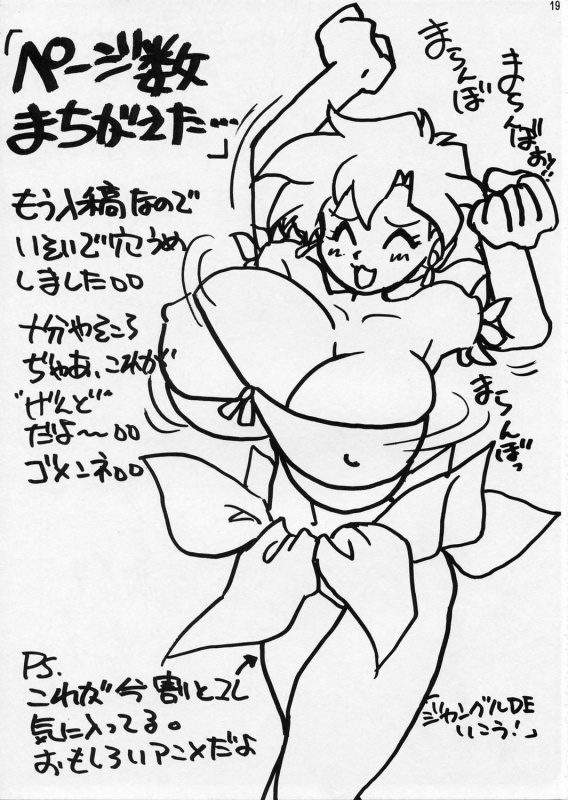 19
「ページ数
まちがえた…」
もう入稿なので
いそいで穴うめ
しました○○
十分やそころ
ぢゃあ、これが
"げんど"
だよ〜○○
ゴメンネ○○
まらんぼ
まらんばぉッ!!
まらんぼっ
PS.
これが今割とコレ
気に入ってる。
おもしろいアニメだよ
「ジャングルDE
いこう!」